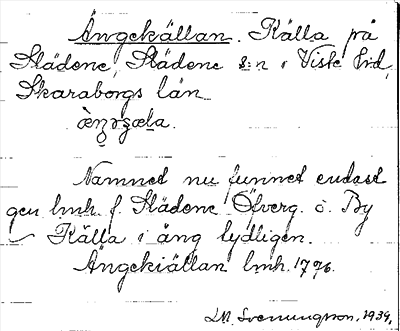 Ängekällan. Källa på
Slädene, Slädene s:n i Viste hrd,
Skaraborgs län
Namnet nu funnet endast
gen lmh. f. Slädene Öfverg. o. By
– Källa i äng tydligen.
Ängekiällan lmh. 1796.
Svenungsson, 1934.